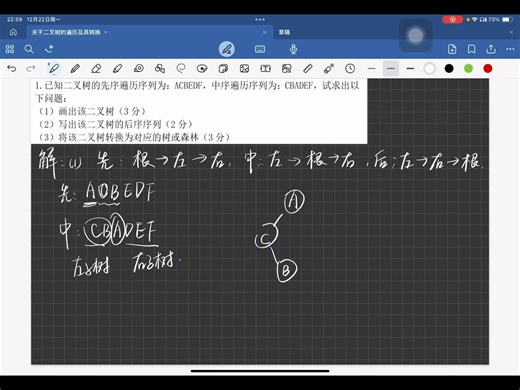 22:59 12月22日周一
73%
关于二叉树的遍历及其转换
草稿
1.已知二叉树的先序遍历序列为：ACBEDF，中序遍历序列为：CBADEF，试求出以
下问题：
（1）画出该二叉树（3 分）
（2）写出该二叉树的后序序列（2 分）
（3）将该二叉树转换为对应的树或森林（3 分）
解:(1) 先：根→左→右，中:左→根→右，后:左→右→根.
先：ACBEDF
A
中：CBADEF
C
左子树 右子树.
B